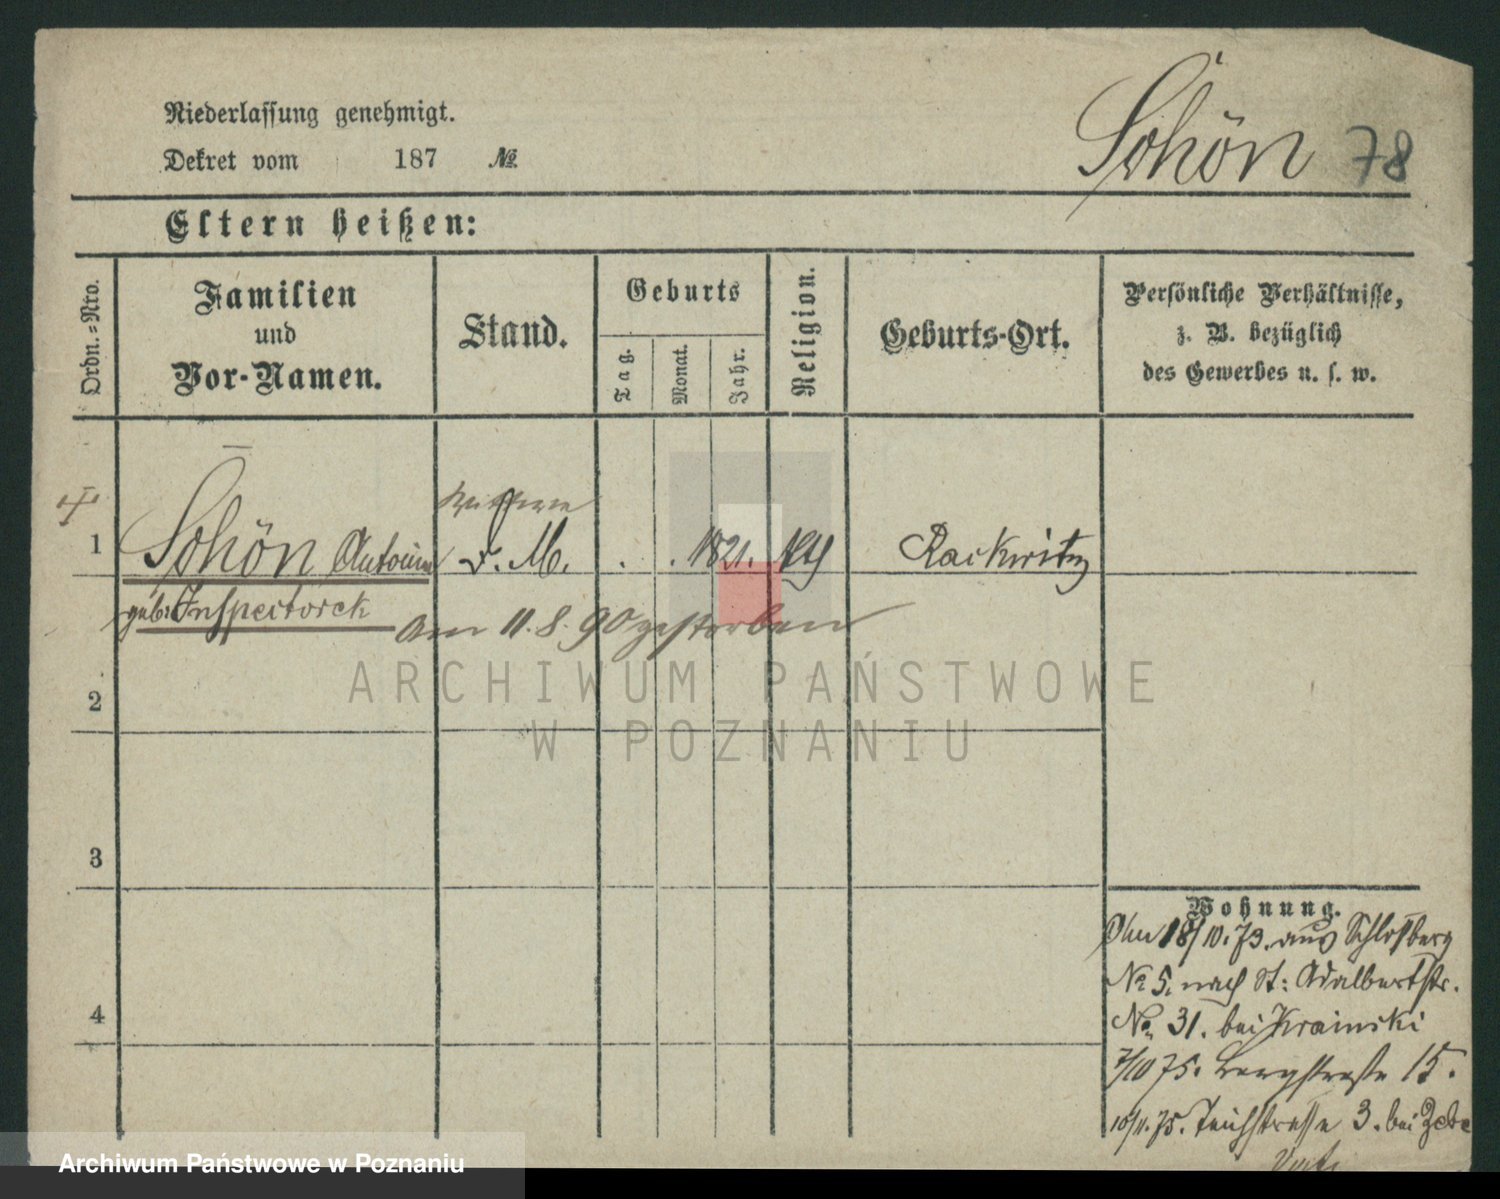 Niederlassung genehmigt.
Dekret vom 187 №
Schön 78
Eltern heißen:
Ordn.=Nro.
Familien
und
Vor-Namen.
Stand.
Geburts
Tag.
Monat.
Jahr.
Religion.
Geburts-Ort.
Persönliche Verhältnisse,
z. B. bezüglich
des Gewerbes u. s. w.
Wittwe
1 Schön Antonina v. M. . . 1821. kth Rackwitz
geb: Inspectorek
am 11.8.90 gestorben
2
3
4
Wohnung.
18/10.73. aus Schloßberg
No 5. nach St: Adalbertstr.
No. 31. bei Krainski
7/10 75. Bergstraße 15.
10/11.75. Teichstrasse 3. bei
ARCHIWUM PAŃSTWOWE
W POZNANIU
Archiwum Państwowe w Poznaniu